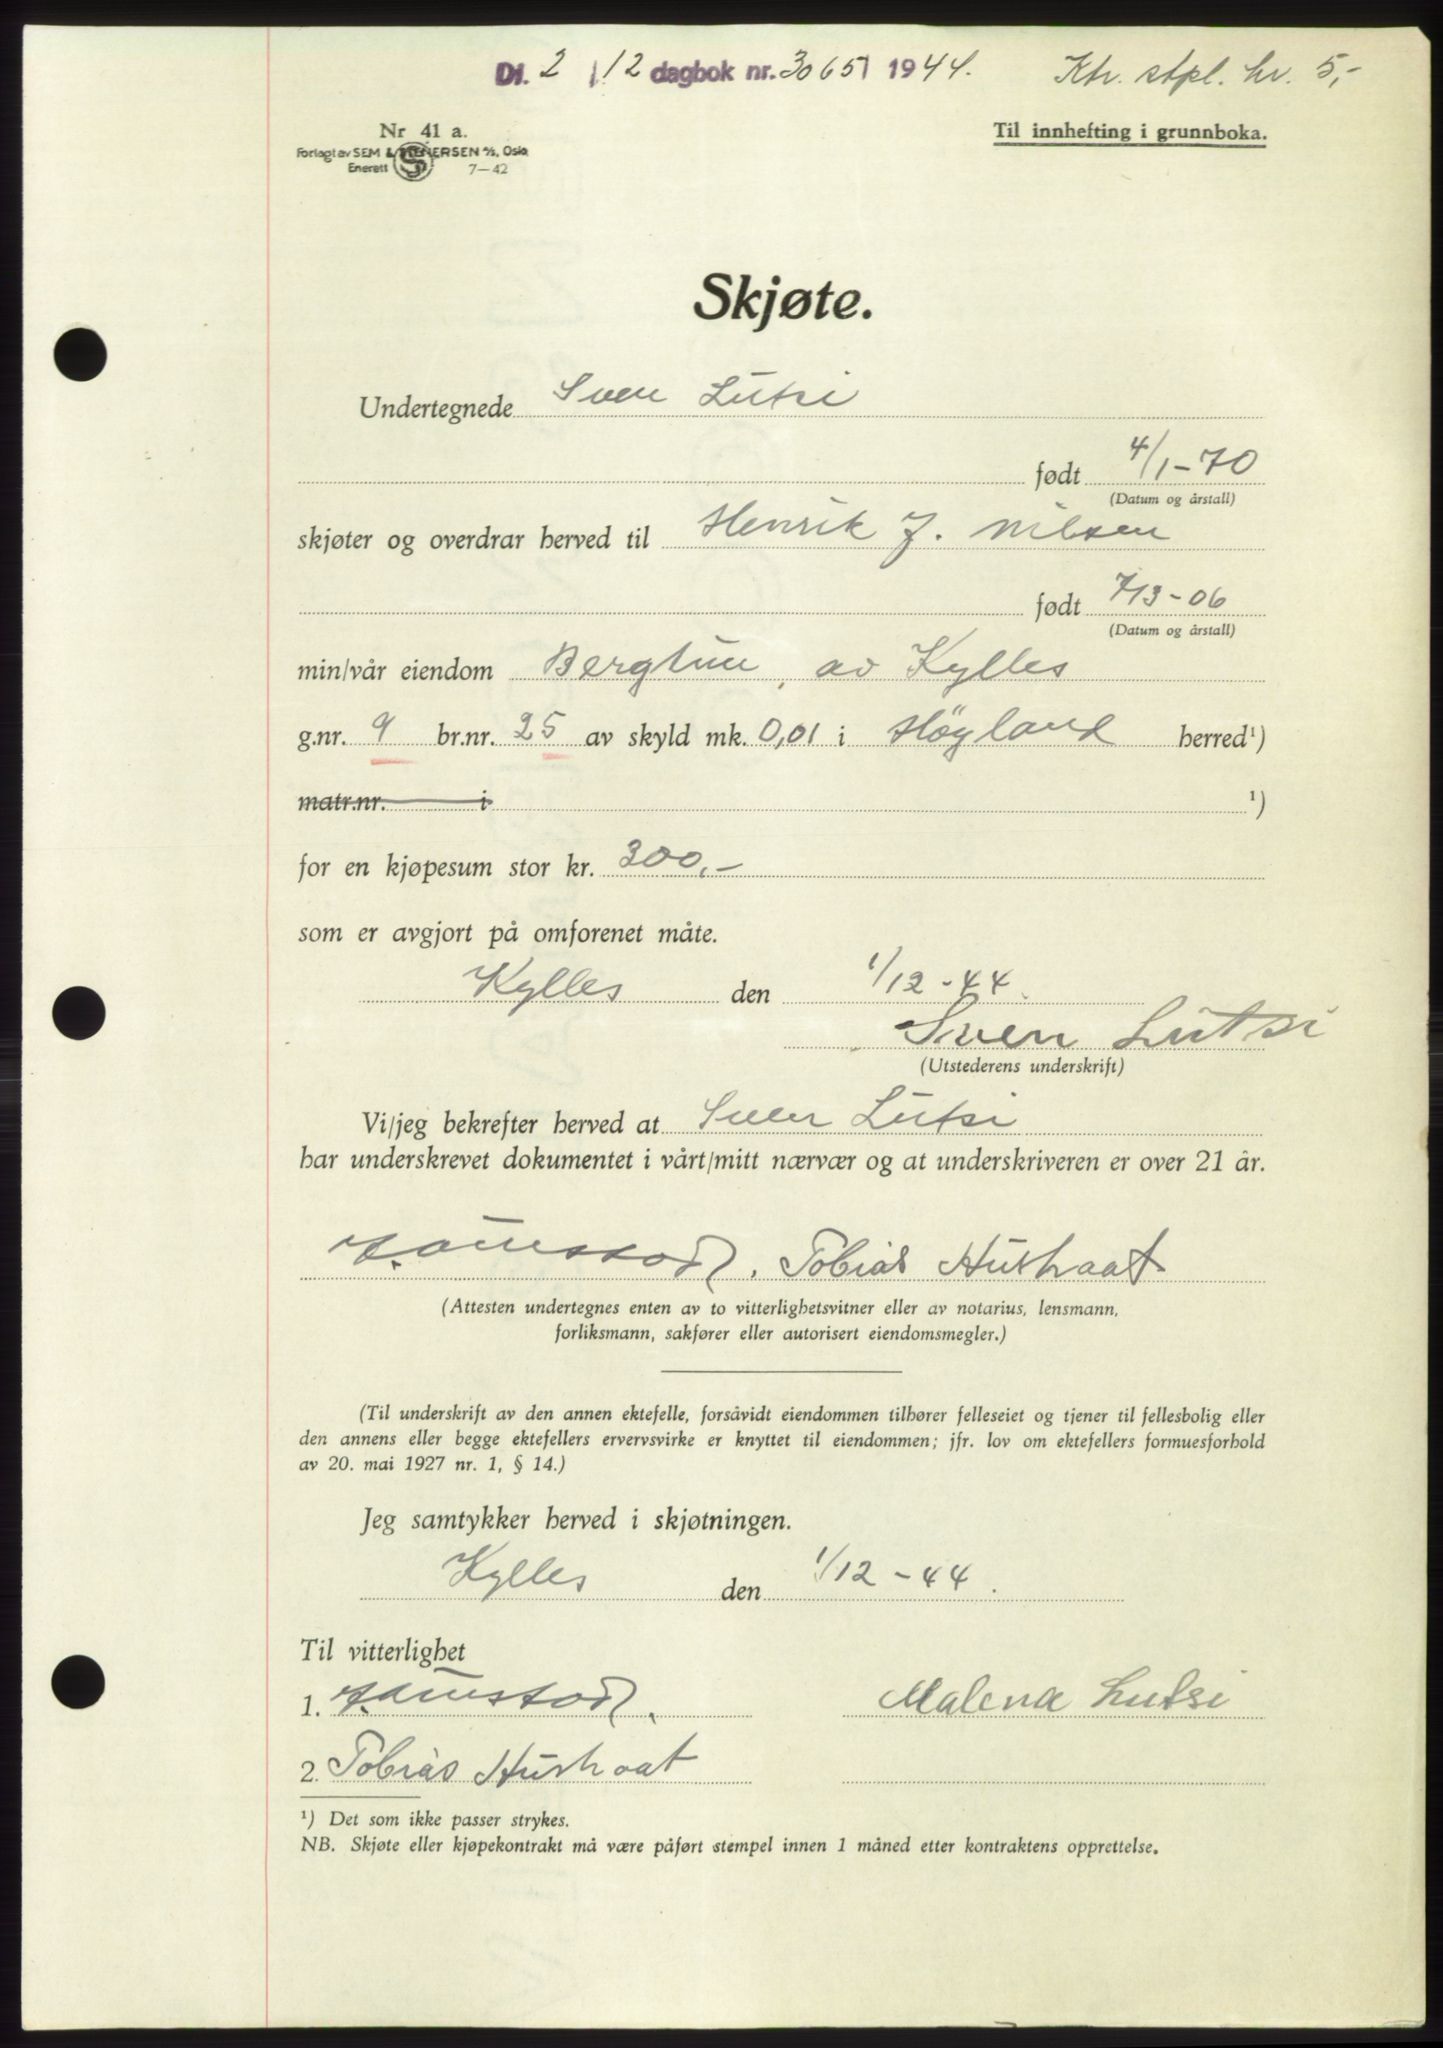 Df. 2 / 12 dagbok nr. 3065 1944. Ktr. stpl. kr. 5,-
Nr 41 a.
Forlagt av SEM & STENERSEN A/S, Oslo
Enerett 7—42
Til innhefting i grunnboka.
Skjøte.
Undertegnede Sven Lutsi
født 4/1-70
(Datum og årstall)
skjøter og overdrar herved til Henrik J. Nilsen
født 7/3-06
(Datum og årstall)
min/vår eiendom Bergtun, av Kylles
g.nr. 9 br.nr. 25 av skyld mk. 0,01 i Høyland herred¹)
matr.nr. i ¹)
for en kjøpesum stor kr. 300,-
som er avgjort på omforenet måte.
Kylles den 1/12-44.
Sven Lutsi
(Utstederens underskrift)
Vi/jeg bekrefter herved at Sven Lutsi
har underskrevet dokumentet i vårt/mitt nærvær og at underskriveren er over 21 år.
Tobias Austraat
(Attesten undertegnes enten av to vitterlighetsvitner eller av notarius, lensmann,
forliksmann, sakfører eller autorisert eiendomsmegler.)
(Til underskrift av den annen ektefelle, forsåvidt eiendommen tilhører felleseiet og tjener til fellesbolig eller
den annens eller begge ektefellers ervervsvirke er knyttet til eiendommen; jfr. lov om ektefellers formuesforhold
av 20. mai 1927 nr. 1, § 14.)
Jeg samtykker herved i skjøtningen.
Kylles den 1/12-44.
Til vitterlighet
1. Malena Lutsi
2. Tobias Austraat
¹) Det som ikke passer strykes.
NB. Skjøte eller kjøpekontrakt må være påført stempel innen 1 måned etter kontraktens opprettelse.